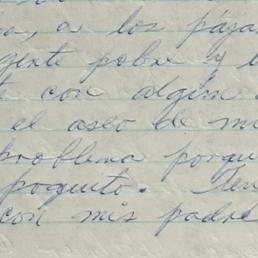 a, a los pája
gente pobre y l
con algún
el aseo de mi
problema porqu
poquito. Ten
con mis padre